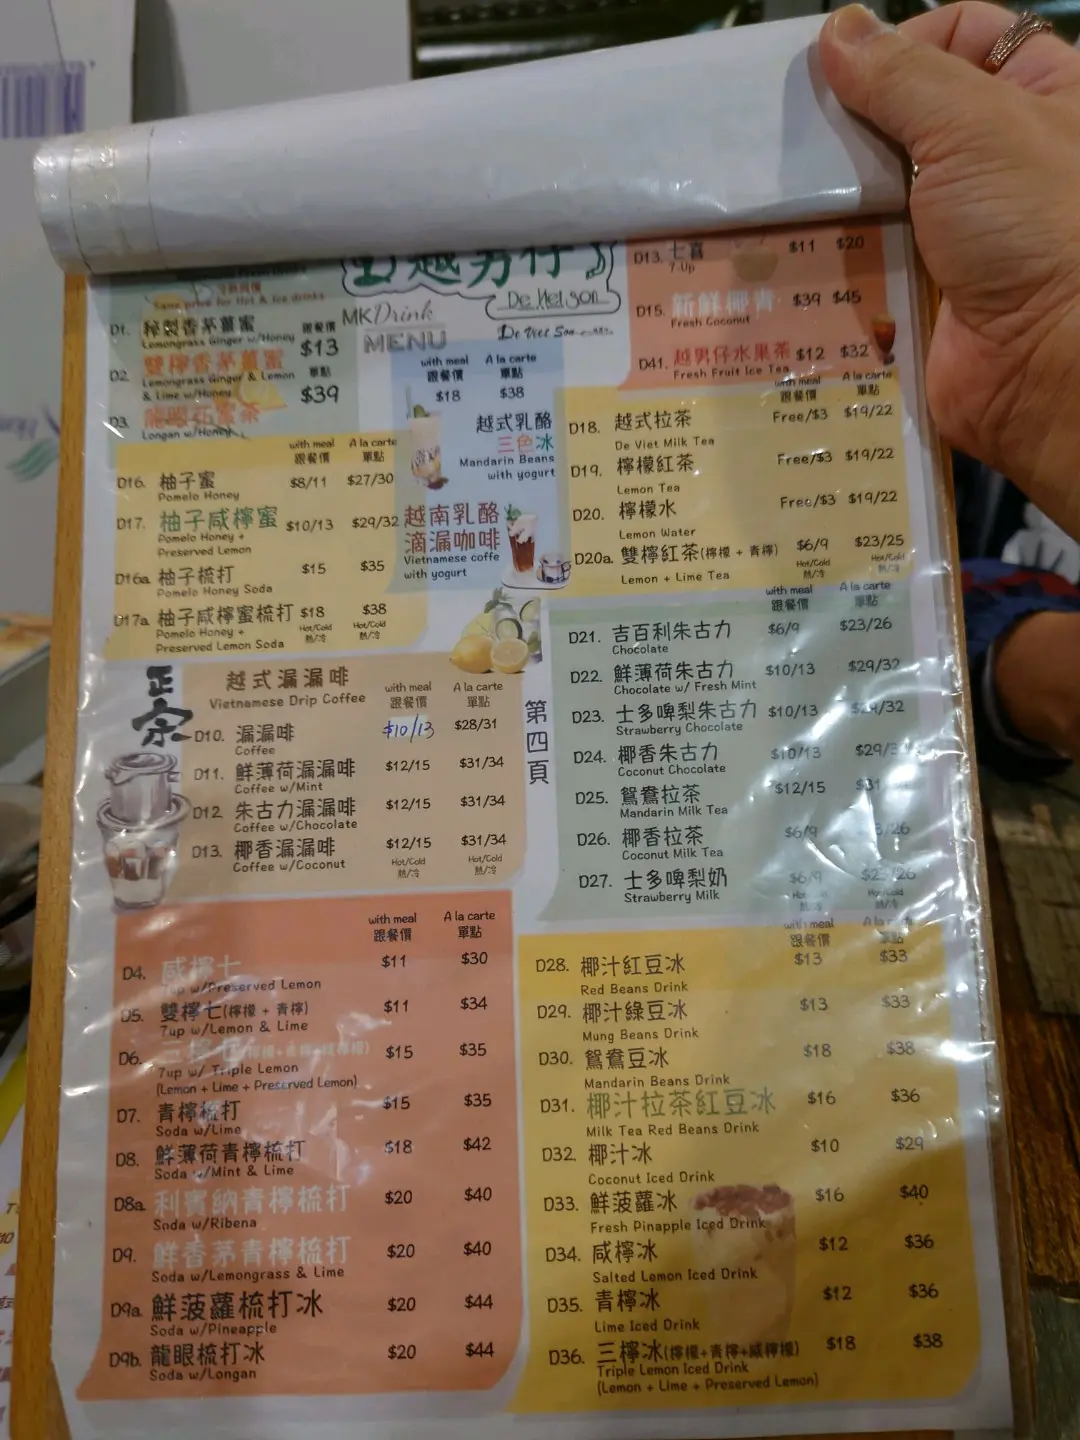 越男仔
De Viet Son
MK Drink
MENU
De Viet Son
Same price for Hot & Ice drinks
D1. 秘製香茅薑蜜 跟餐價
Lemongrass Ginger w/Honey $13
D2. 雙檸香茅薑蜜 單點
Lemongrass Ginger & Lemon
& Lime w/Honey $39
D3. 龍眼石蜜茶
Longan w/Honey
with meal A la carte
跟餐價 單點
$18 $38
越式乳酪
三色冰
Mandarin Beans
with yogurt
越南乳酪
滴漏咖啡
Vietnamese coffe
with yogurt
D13. 七喜 $11 $20
7-Up
D15. 新鮮椰青 $39 $45
Fresh Coconut
D41. 越男仔水果茶 $12 $32
Fresh Fruit Ice Tea
with meal A la carte
跟餐價 單點
D16. 柚子蜜 $8/11 $27/30
Pomelo Honey
D17. 柚子咸檸蜜 $10/13 $29/32
Pomelo Honey +
Preserved Lemon
D16a 柚子梳打 $15 $35
Pomelo Honey Soda
D17a 柚子咸檸蜜梳打 $18 $38
Pomelo Honey + Hot/Cold Hot/Cold
Preserved Lemon Soda 熱/冷 熱/冷
with meal A la carte
跟餐價 單點
D18. 越式拉茶 Free/$3 $19/22
De Viet Milk Tea
D19. 檸檬紅茶 Free/$3 $19/22
Lemon Tea
D20. 檸檬水 Free/$3 $19/22
Lemon Water
D20a. 雙檸紅茶(檸檬 + 青檸) $6/9 $23/25
Lemon + Lime Tea Hot/Cold Hot/Cold
熱/冷 熱/冷
正宗
越式漏漏啡 with meal A la carte
Vietnamese Drip Coffee 跟餐價 單點
D10. 漏漏啡 $10/13 $28/31
Coffee
D11. 鮮薄荷漏漏啡 $12/15 $31/34
Coffee w/Mint
D12 朱古力漏漏啡 $12/15 $31/34
Coffee w/Chocolate
D13. 椰香漏漏啡 $12/15 $31/34
Coffee w/Coconut Hot/Cold Hot/Cold
熱/冷 熱/冷
第四頁
with meal A la carte
跟餐價 單點
D21. 吉百利朱古力 $6/9 $23/26
Chocolate
D22. 鮮薄荷朱古力 $10/13 $29/32
Chocolate w/ Fresh Mint
D23. 士多啤梨朱古力 $10/13 $29/32
Strawberry Chocolate
D24. 椰香朱古力 $10/13 $29/
Coconut Chocolate
D25. 鴛鴦拉茶 $12/15 $31
Mandarin Milk Tea
D26. 椰香拉茶 $6/9 /26
Coconut Milk Tea
D27. 士多啤梨奶 $6/9 $23/26
Strawberry Milk Hot/Cold
熱/冷 熱/冷
with meal A la carte
跟餐價 單點
D4. 咸檸七 $11 $30
7up w/Preserved Lemon
D5. 雙檸七(檸檬 + 青檸) $11 $34
7up w/Lemon & Lime
D6. 三檸七(檸檬+青檸+咸檸檬) $15 $35
7up w/ Triple Lemon
(Lemon + Lime + Preserved Lemon)
D7. 青檸梳打 $15 $35
Soda w/Lime
D8. 鮮薄荷青檸梳打 $18 $42
Soda w/Mint & Lime
D8a 利賓納青檸梳打 $20 $40
Soda w/Ribena
D9. 鮮香茅青檸梳打 $20 $40
Soda w/Lemongrass & Lime
D9a 鮮菠蘿梳打冰 $20 $44
Soda w/Pineapple
D9b. 龍眼梳打冰 $20 $44
Soda w/Longan
with meal A la carte
跟餐價 單點
D28. 椰汁紅豆冰 $13 $33
Red Beans Drink
D29. 椰汁綠豆冰 $13 $33
Mung Beans Drink
D30. 鴛鴦豆冰 $18 $38
Mandarin Beans Drink
D31. 椰汁拉茶紅豆冰 $16 $36
Milk Tea Red Beans Drink
D32. 椰汁冰 $10 $29
Coconut Iced Drink
D33. 鮮菠蘿冰 $16 $40
Fresh Pinapple Iced Drink
D34. 咸檸冰 $12 $36
Salted Lemon Iced Drink
D35. 青檸冰 $12 $36
Lime Iced Drink
D36. 三檸冰(檸檬+青檸+咸檸檬) $18 $38
Triple Lemon Iced Drink
(Lemon + Lime + Preserved Lemon)